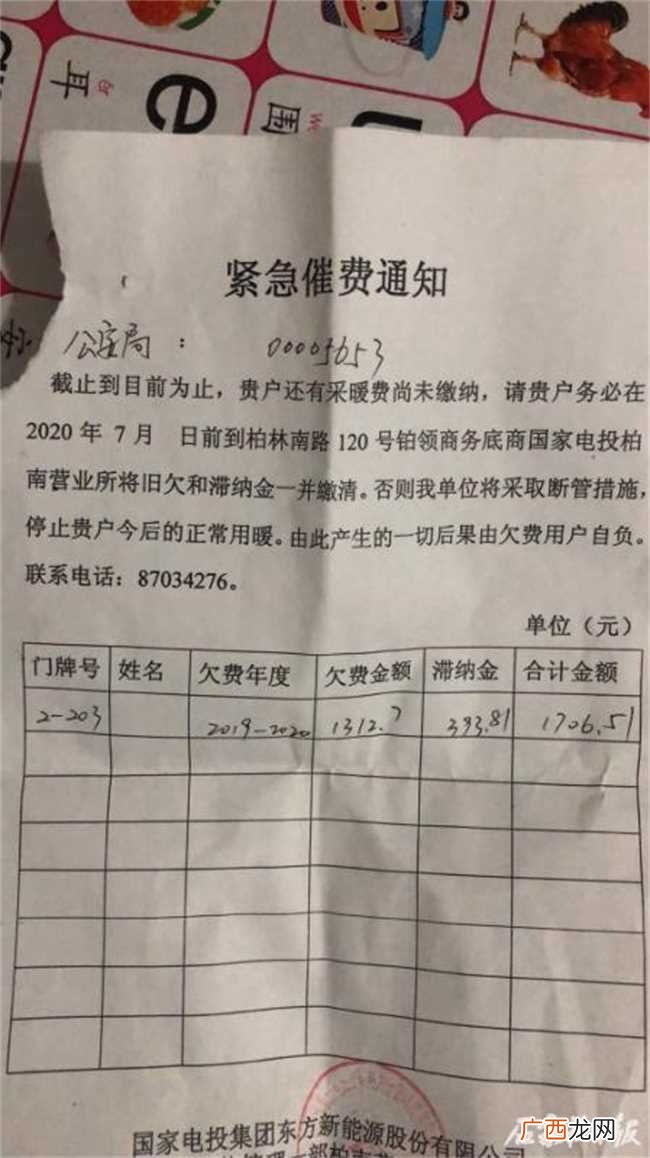 耳
er
e
围
We
紧急催费通知
: 00005653
截止到目前为止，贵户还有采暖费尚未缴纳，请贵户务必在
2020 年 7 月 日前到柏林南路 120 号铂领商务底商国家电投柏
南营业所将旧欠和滞纳金一并缴清。否则我单位将采取断管措施，
停止贵户今后的正常用暖。由此产生的一切后果由欠费用户自负。
联系电话：87034276。
单位（元）
门牌号 姓名 欠费年度 欠费金额 滞纳金 合计金额
2-203 2019-2020 1312.7 393.81 1706.51
国家电投集团东方新能源股份有限公司
广西龙网